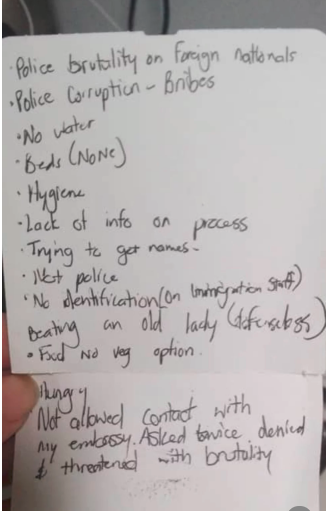 · Police brutality on foreign nationals
· Police Corruption - Bribes
· No water
· Beds (NONE)
· Hygiene
· Lack of info on process
· Trying to get names -
· Not police
· No identification (on immigration staff)
Beating an old lady (defenseless)
· Food No veg option.
Hungry
Not allowed contact with
my embassy. Asked twice, denied
& threatened with brutality